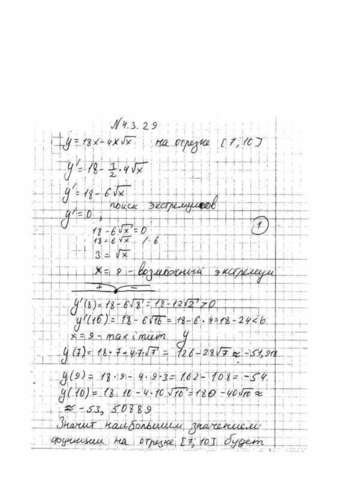 N 4.3.29
y = 18x - 4x√x на отрезке [7, 10]
y' = 18 - 3/2 · 4√x
y' = 18 - 6√x
y' = 0, поиск экстремумов
1
18 - 6√x = 0
18 = 6√x /·6
3 = √x
x = 9 - возможный экстремум
+ -
y'(8) = 18 - 6√8 = 18 - 12√2 > 0
y'(16) = 18 - 6√16 = 18 - 6·4 = 18 - 24 < 0
x = 9 - max y
y(7) = 18·7 - 4·7√7 = 126 - 28√7 ≈
y(9) = 18·9 - 4·9·3 = 162 - 108 = -54
y(10) = 18·10 - 4·10√10 = 180 - 40√10 ≈
≈ -53,50789
Значит наибольшим значением
функции на отрезке [7, 10] будет